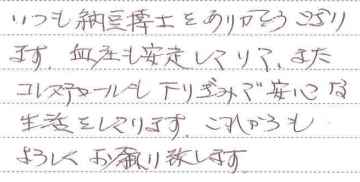 いつも納豆博士をありがとうござい
ます。血圧も安定していて、また
コレステロールも下りぎみで安心な
生活をしています。これからも
よろしくお願い致します